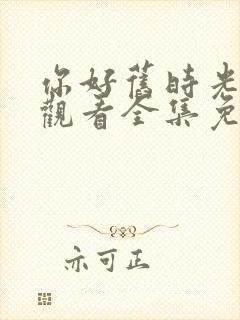 你好舊時光
觀看全集免
亦可正